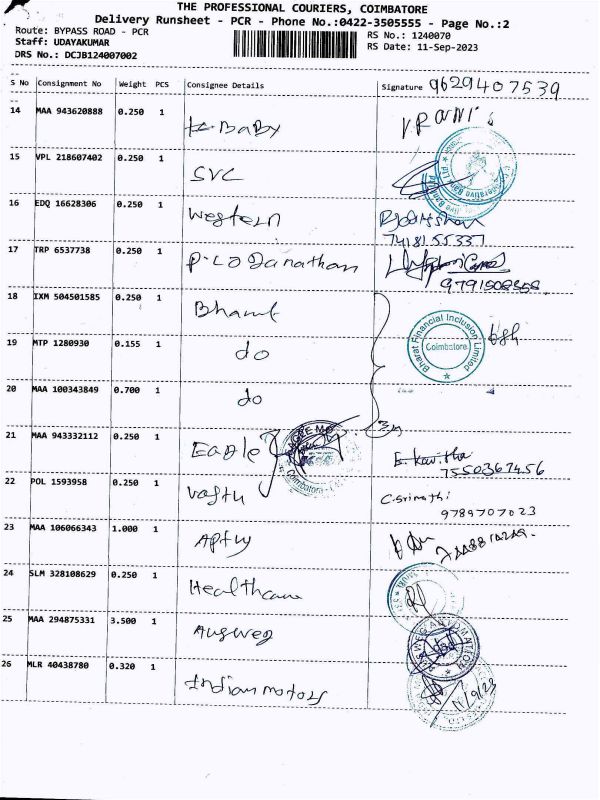 THE PROFESSIONAL COURIERS, COIMBATORE
Delivery Runsheet - PCR - Phone No.:0422-3505555 - Page No.:2
Route: BYPASS ROAD - PCR
RS No.: 1240070
Staff: UDAYAKUMAR
RS Date: 11-Sep-2023
DRS No.: DCJB124007002
S No Consignment No Weight PCS Consignee Details Signature 9629407539
14 MAA 943620888 0.250 1 Baby
15 VPL 218607402 0.250 1 SVC
16 EDQ 16628306 0.250 1 Western
7418155337
17 TRP 6537738 0.250 1
18 IXM 504501585 0.250 1 Bharat
Bharat Financial Inclusion Limited
Coimbatore
19 MTP 1280930 0.155 1 do
20 MAA 100343849 0.700 1 do
21 MAA 943332112 0.250 1 Eagle E. Kavitha
7550367456
22 POL 1593958 0.250 1 Vasthu C. Srimathi
9789707023
23 MAA 106066343 1.000 1
24 SLM 328108629 0.250 1 Healthcare
25 MAA 294875331 3.500 1 Ausweg
26 MLR 40438780 0.320 1 Indian motors
11/9/23